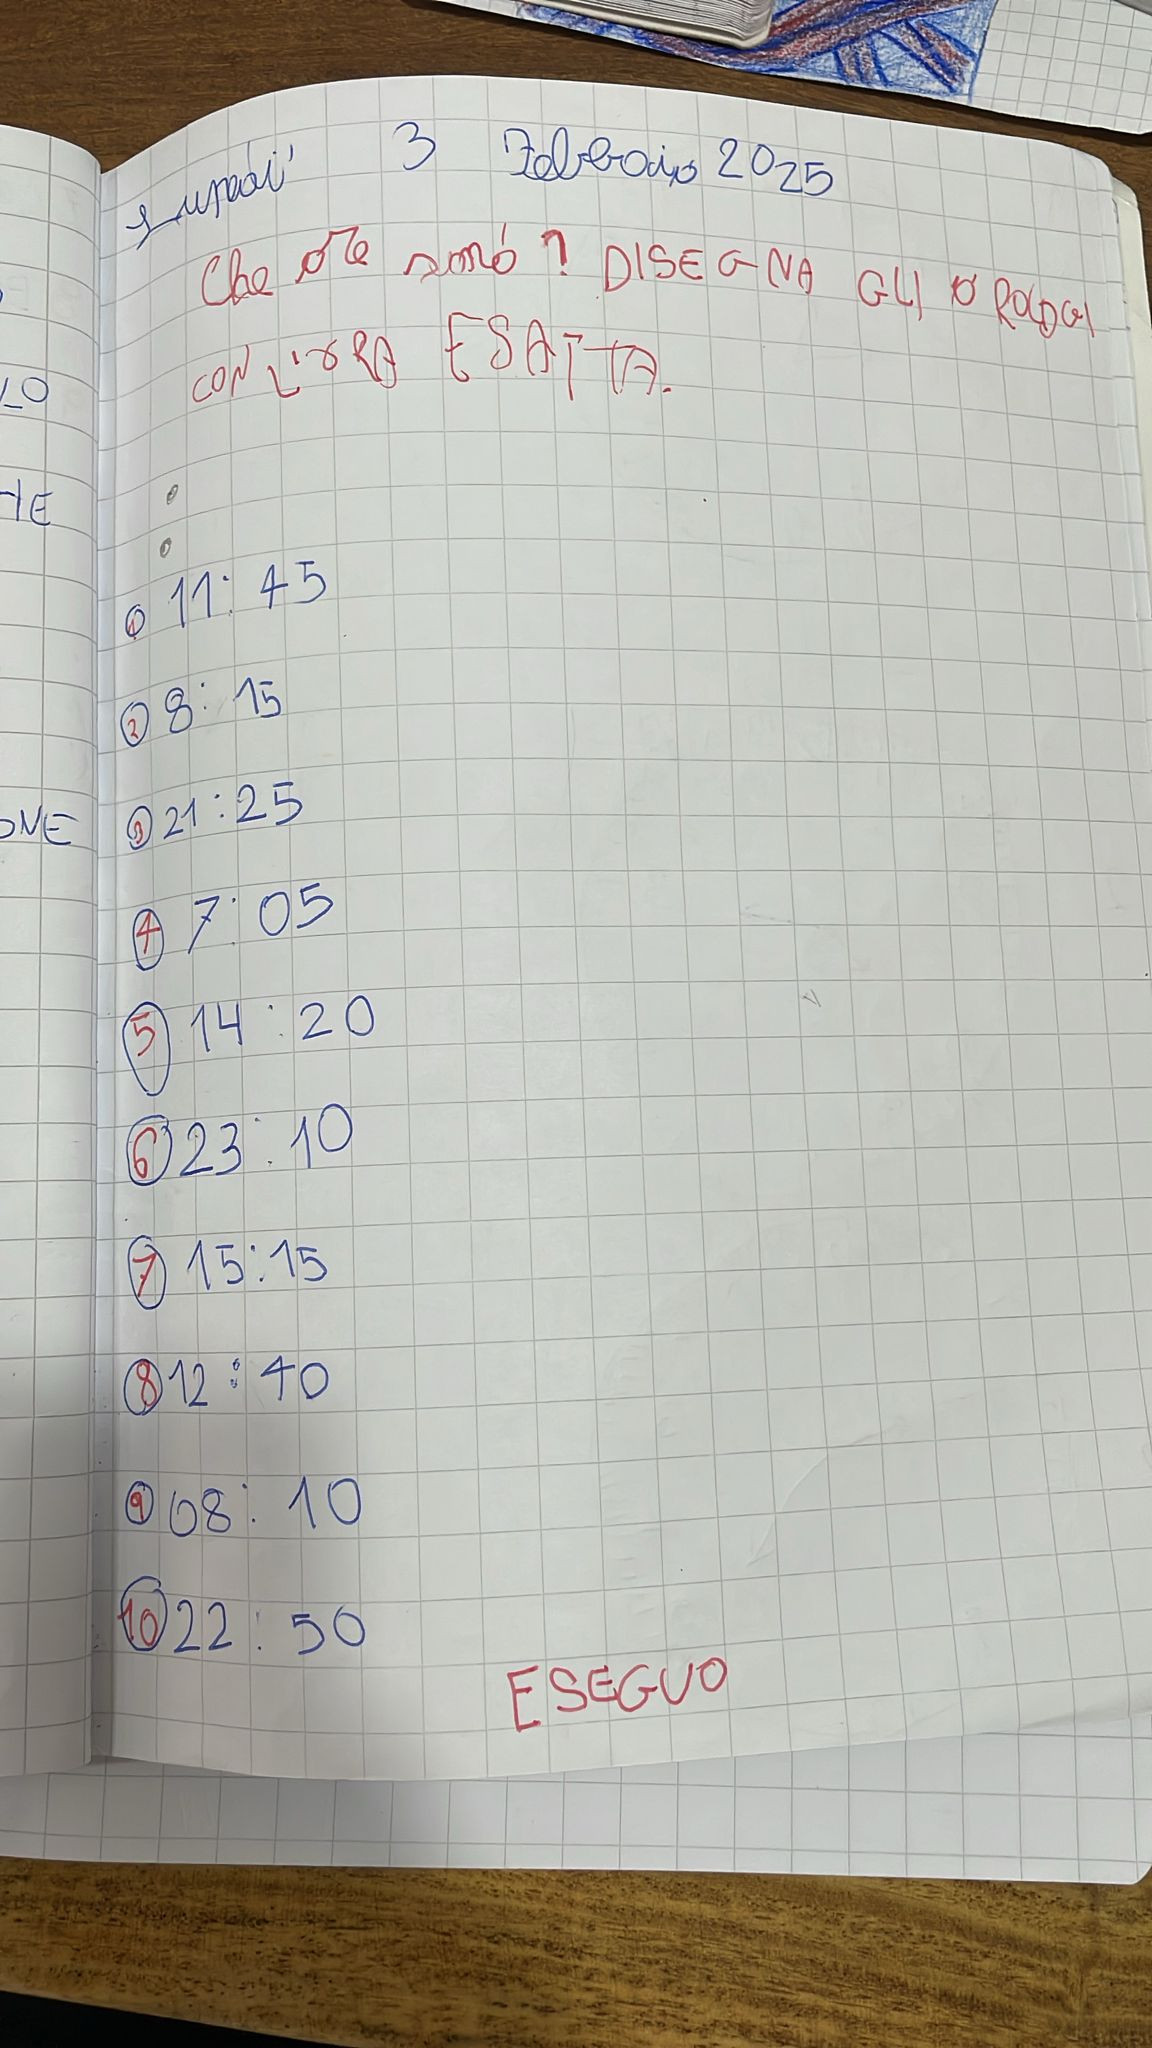 Lunedi' 3 Febbraio 2025
Che ore sono? DISEGNA GLI OROLOGI
CON L'ORA ESATTA.
LO
HE
1 11:45
2 8:15
3 21:25
ONE
4 7:05
5 14:20
6 23:10
7 15:15
8 12:40
9 08:10
10 22:50
ESEGUO